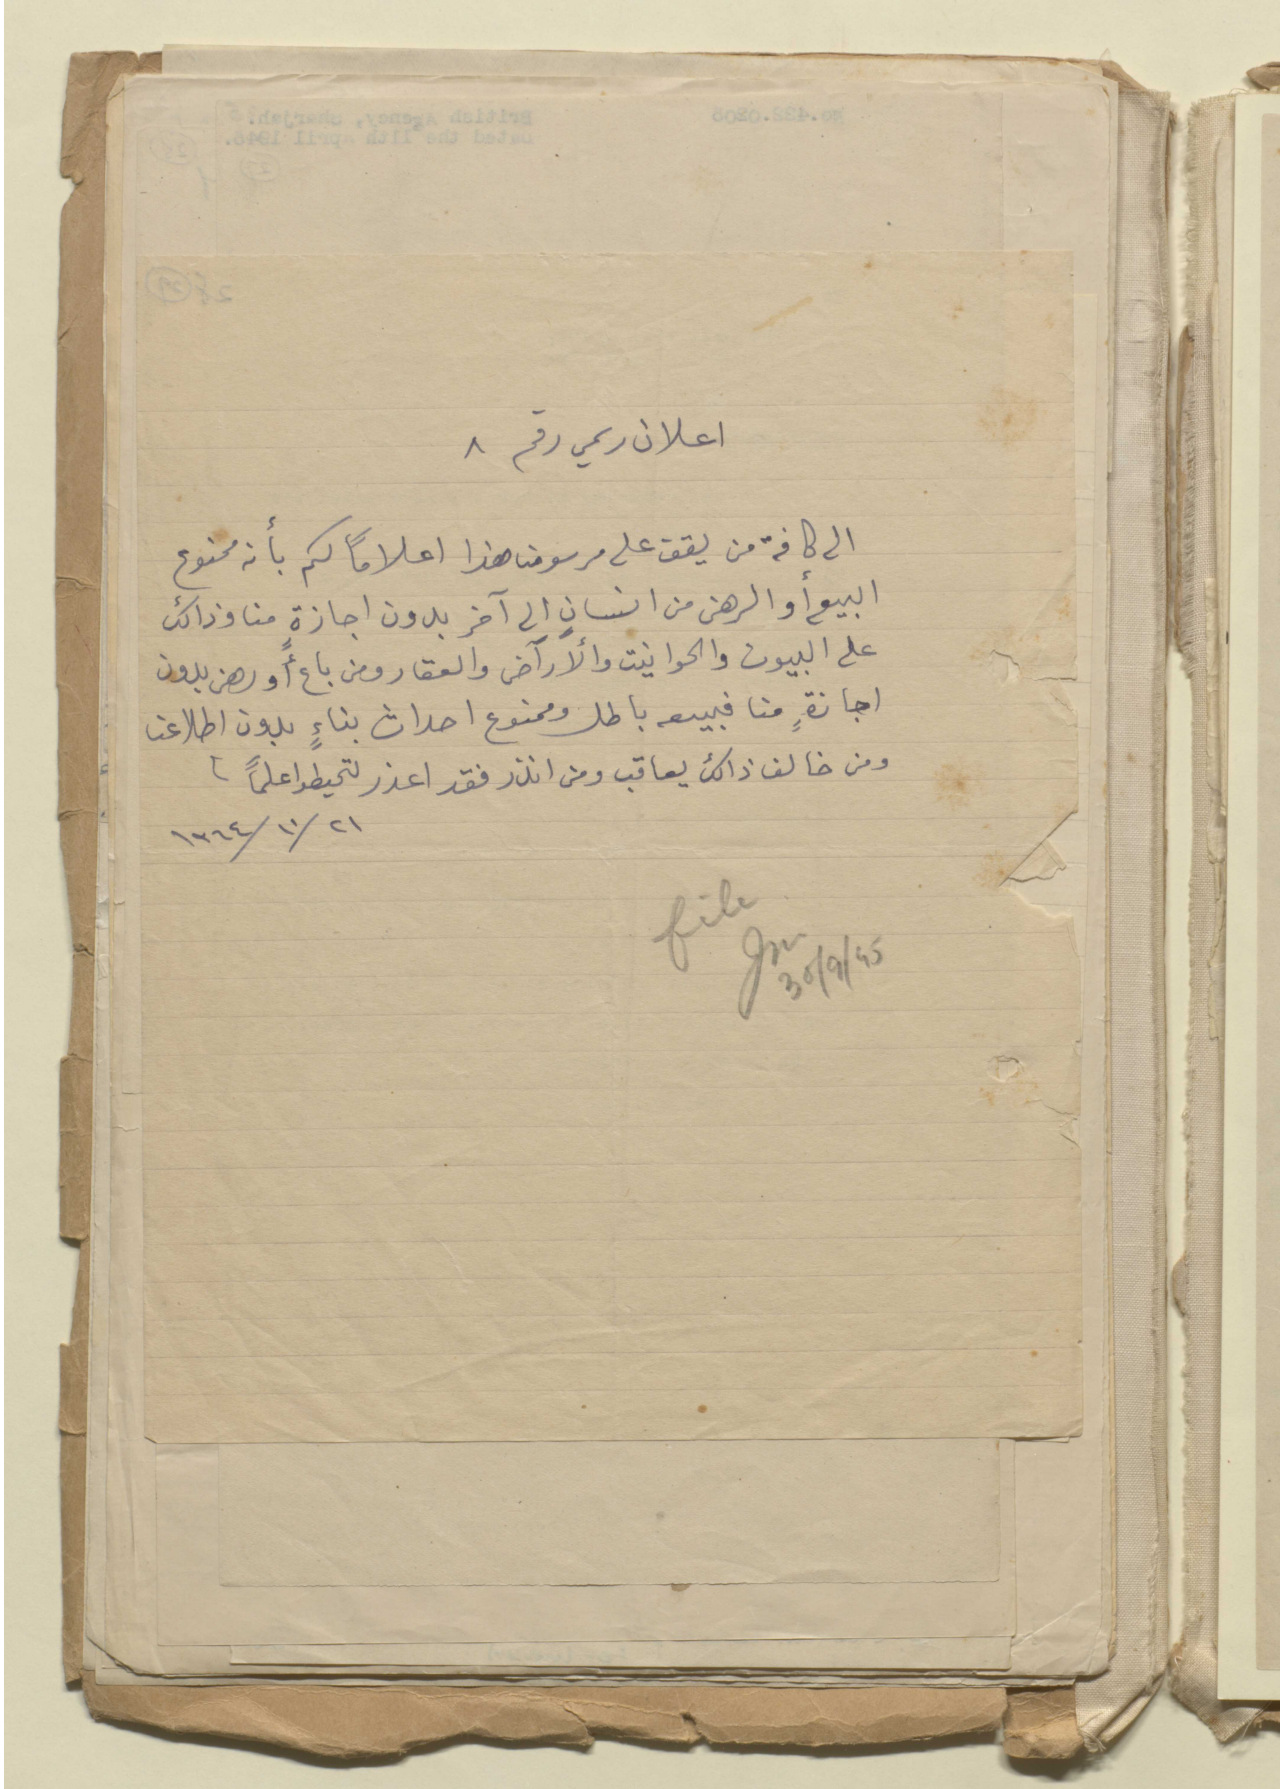 اعلان رسمي رقم ٨
الى كافة من يقف على مرسومنا هذا اعلاماً لكم بأنه ممنوع
البيع أو الرهن من انسانٍ الى آخر بدون اجازةٍ منا وذالك
على البيوت والحوانيت والأراض والعقار ومن باع أو رهن بدون
اجازةٍ منا فبيعه باطل وممنوع احداث بناءٍ بدون اطلاعنا
ومن خالف ذالك يعاقب ومن انذر فقد اعذر لتحيطوا علماً
٢١/١٠/١٣٦٤
file
30/9/45
No.432.0206
British Agency, Sharjah.
Dated the 11th April 1946.
28